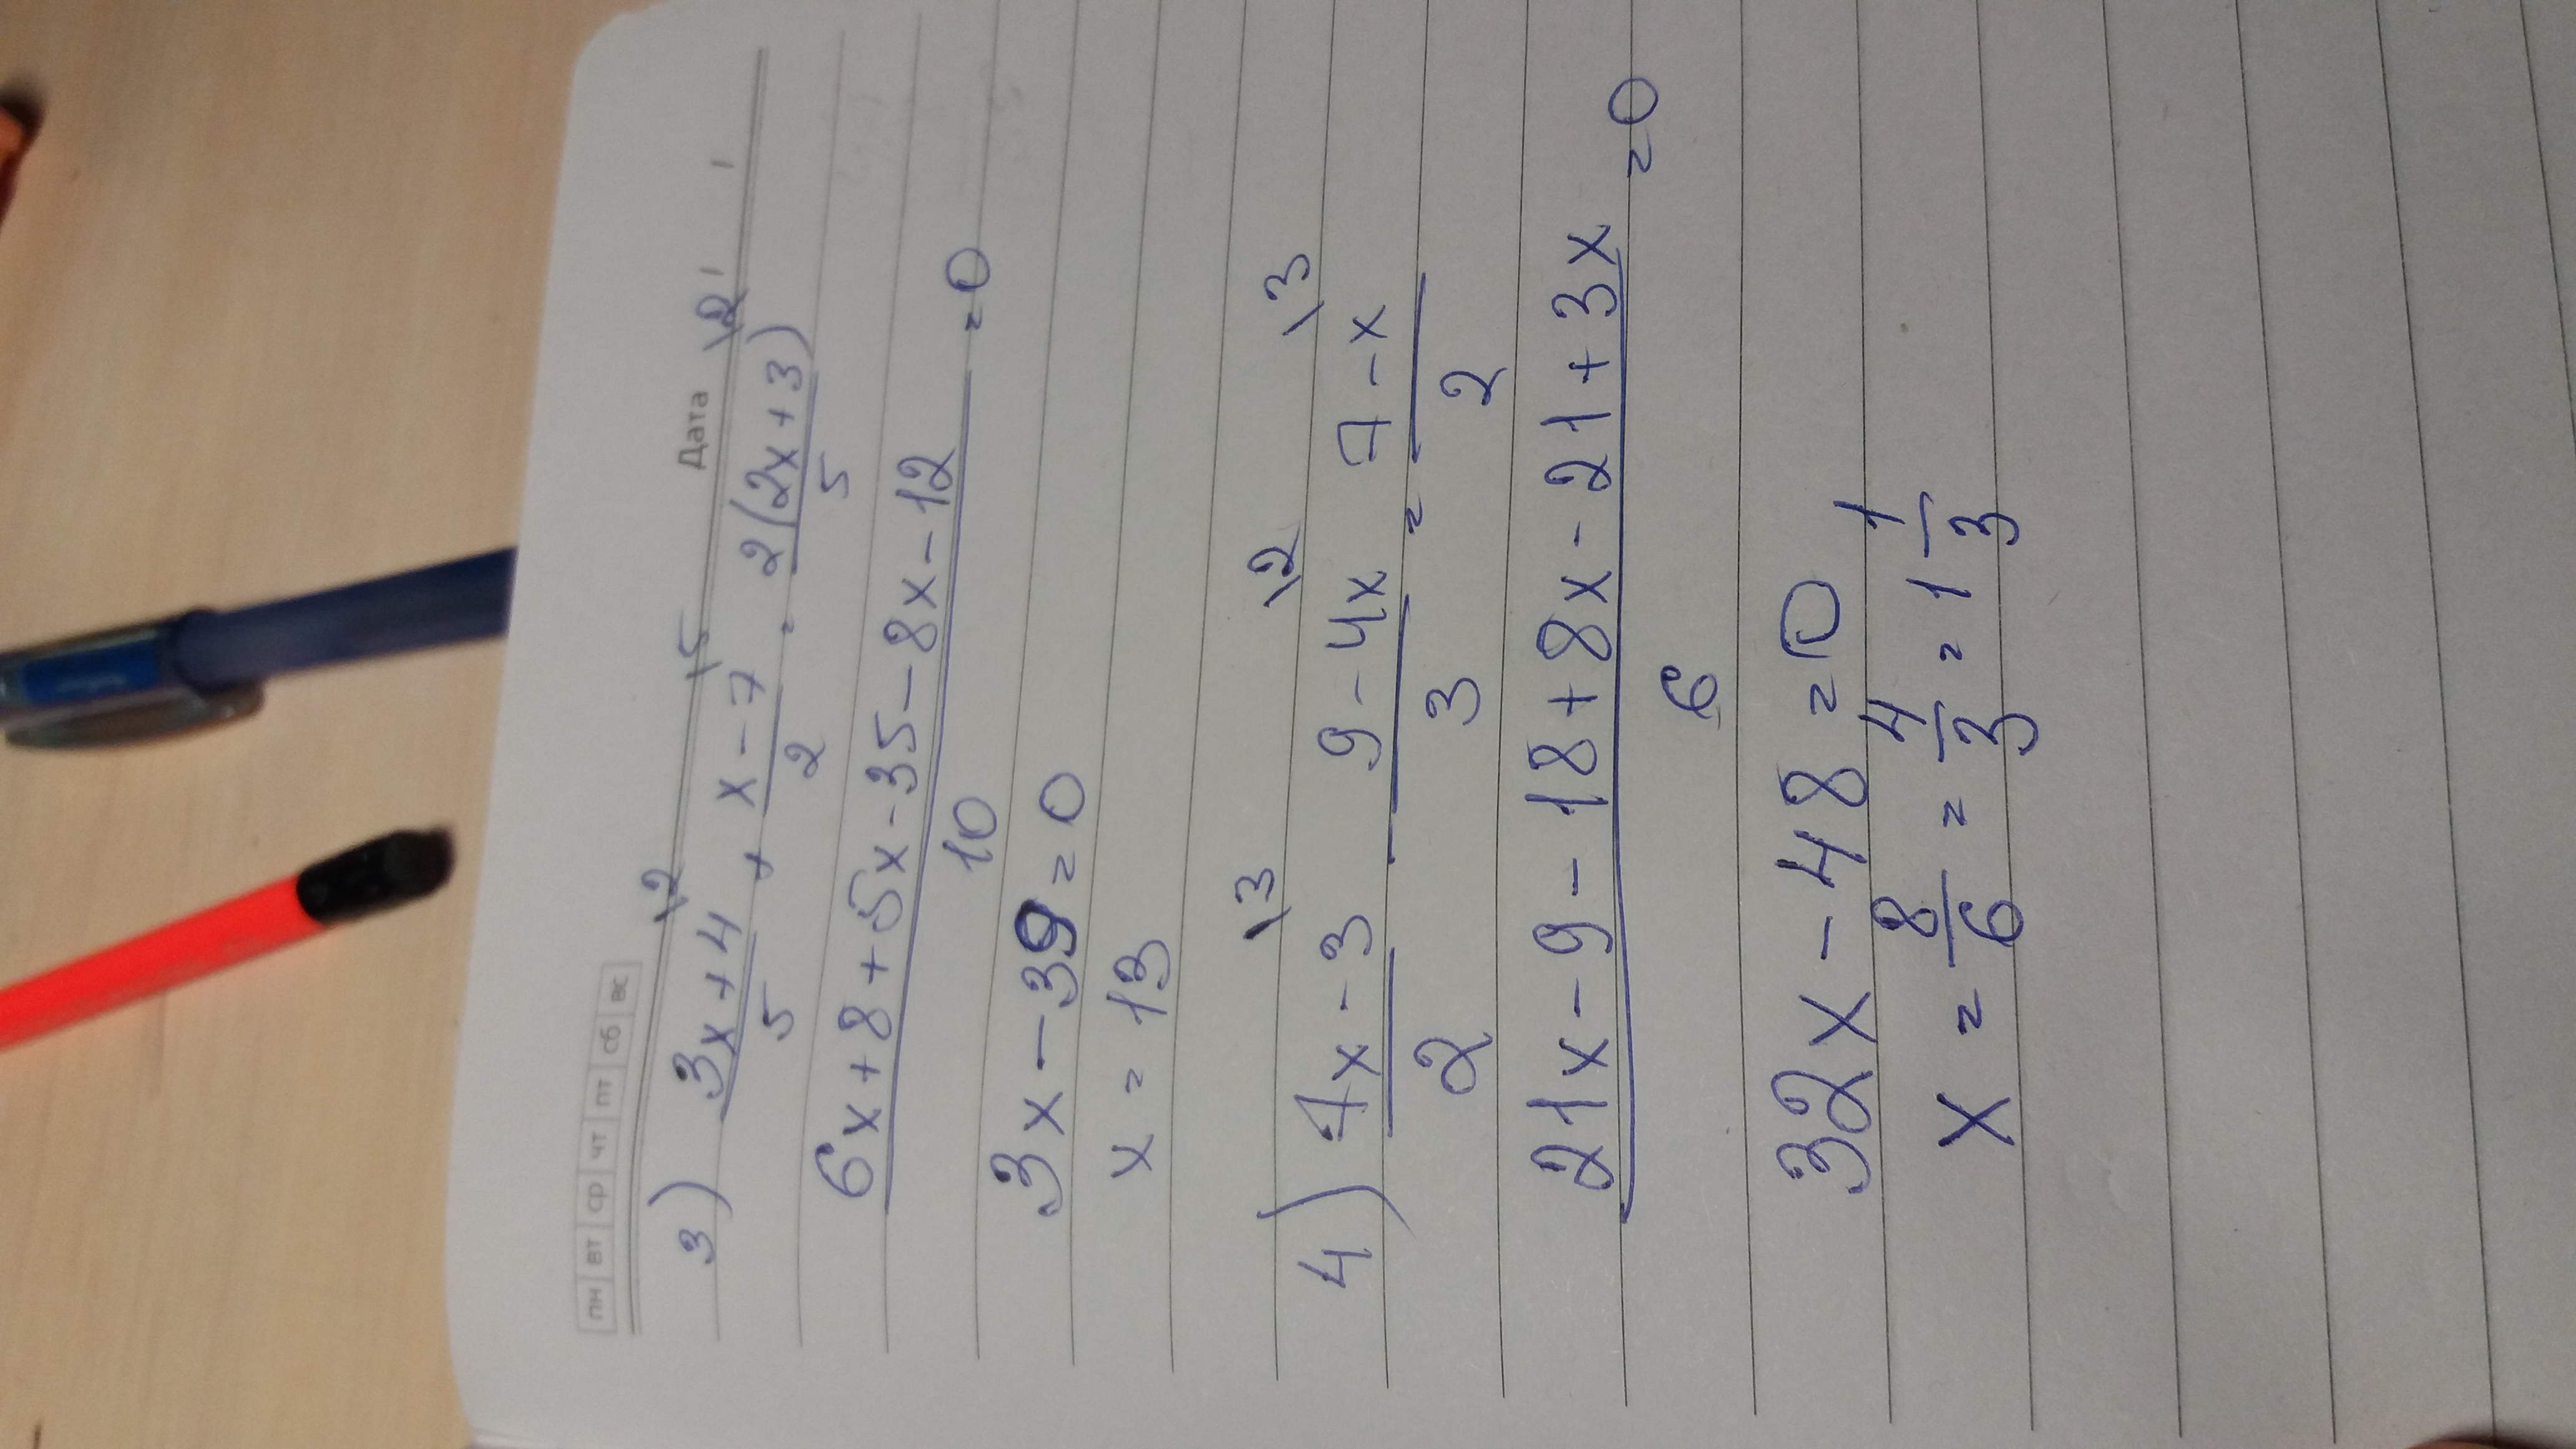 пн вт ср чт пт сб вс Дата
3) (3x+4)/5 \2 + (x-7)/2 \5 = 2(2x+3)/5 \2
(6x+8+5x-35-8x-12)/10 =0
3x-39=0
x=13
4) (7x-3)/2 \3 - (9-4x)/3 \2 = (7-x)/2 \3
(21x-9-18+8x-21+3x)/6 =0
32x-48=0
x = 8/6 = 4/3 = 1 1/3